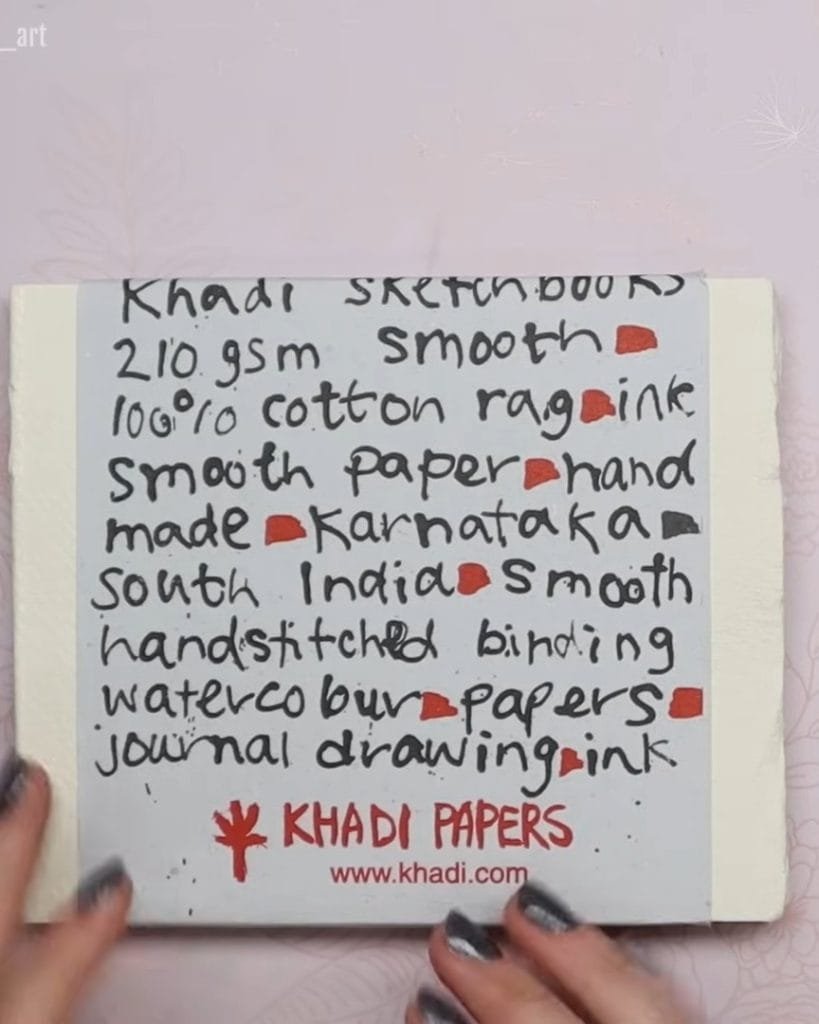 _art
Khadi sketchbooks
210 gsm smooth
100% cotton rag ink
smooth paper hand
made Karnataka
south India smooth
handstitched binding
watercolour papers
journal drawing ink
KHADI PAPERS
www.khadi.com